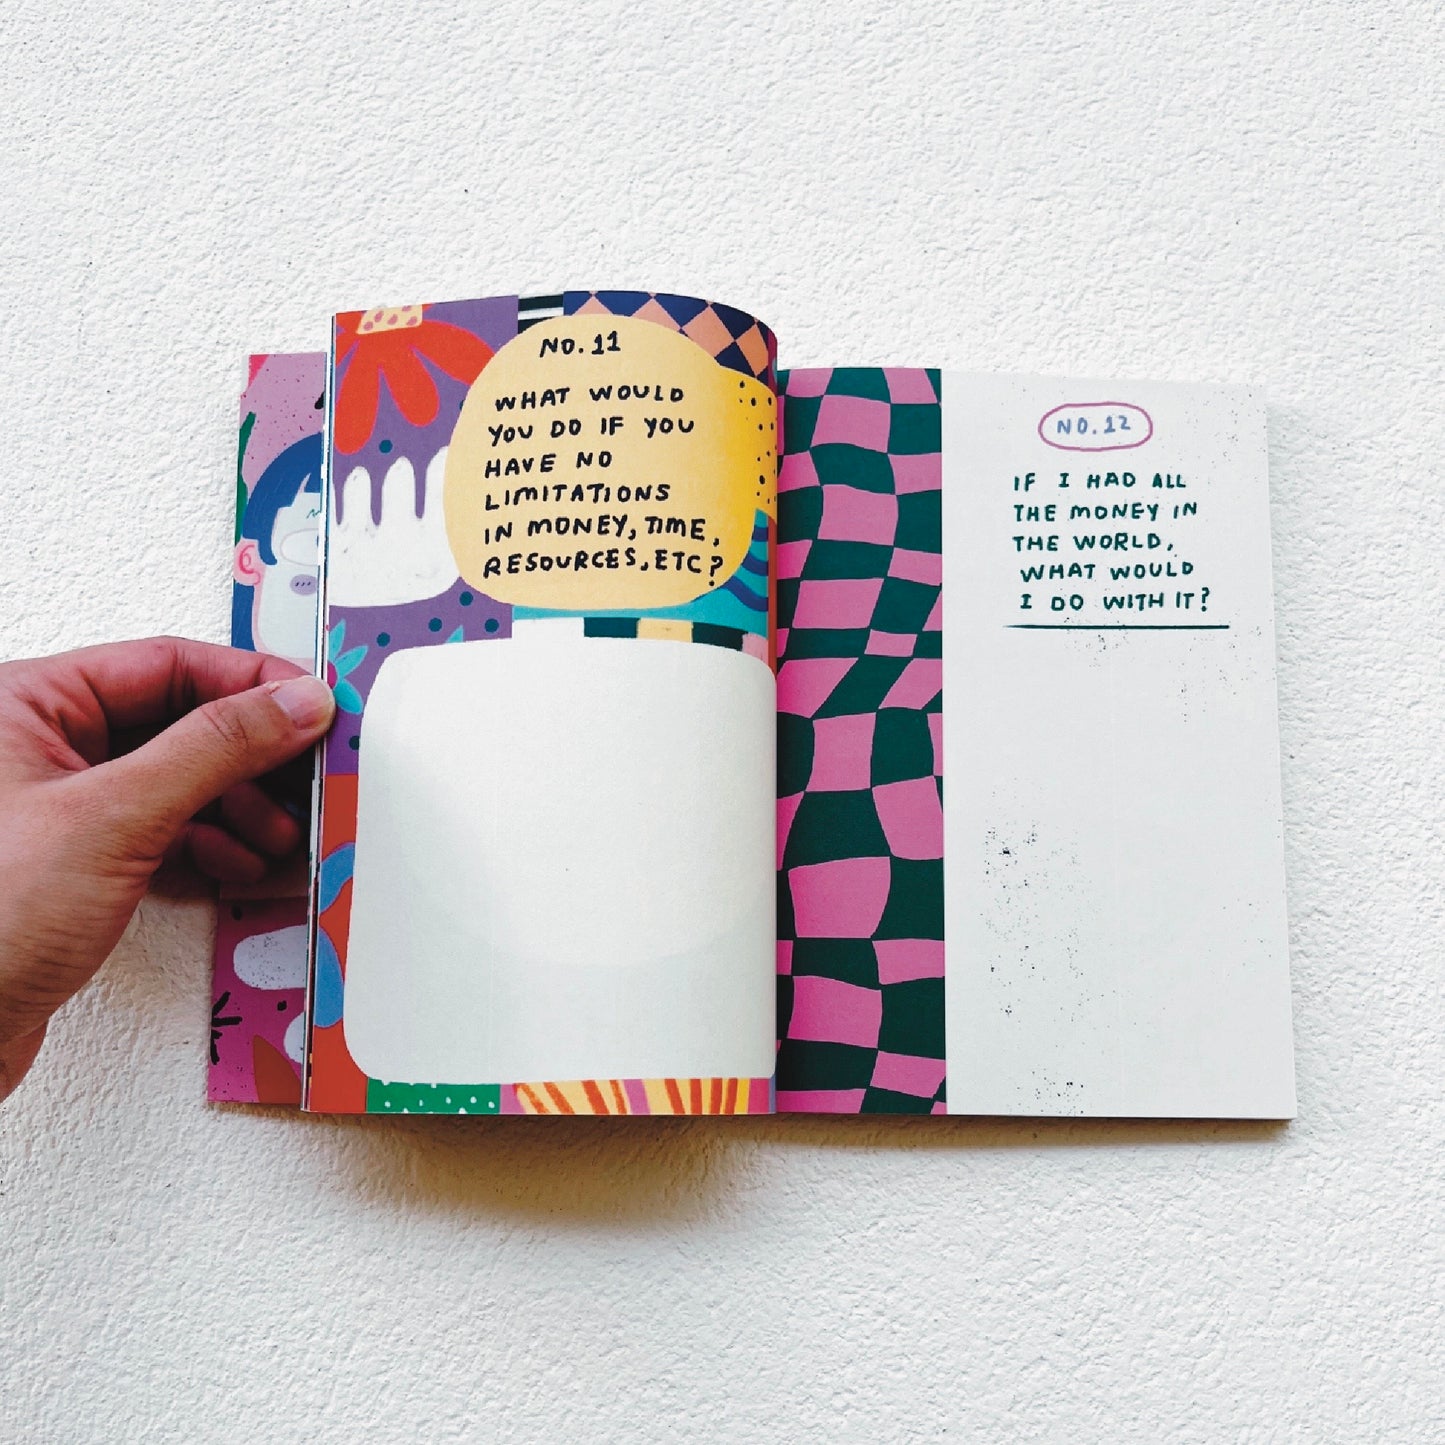 NO. 11
WHAT WOULD
YOU DO IF YOU
HAVE NO
LIMITATIONS
IN MONEY, TIME,
RESOURCES, ETC?
NO. 12
IF I HAD ALL
THE MONEY IN
THE WORLD,
WHAT WOULD
I DO WITH IT?